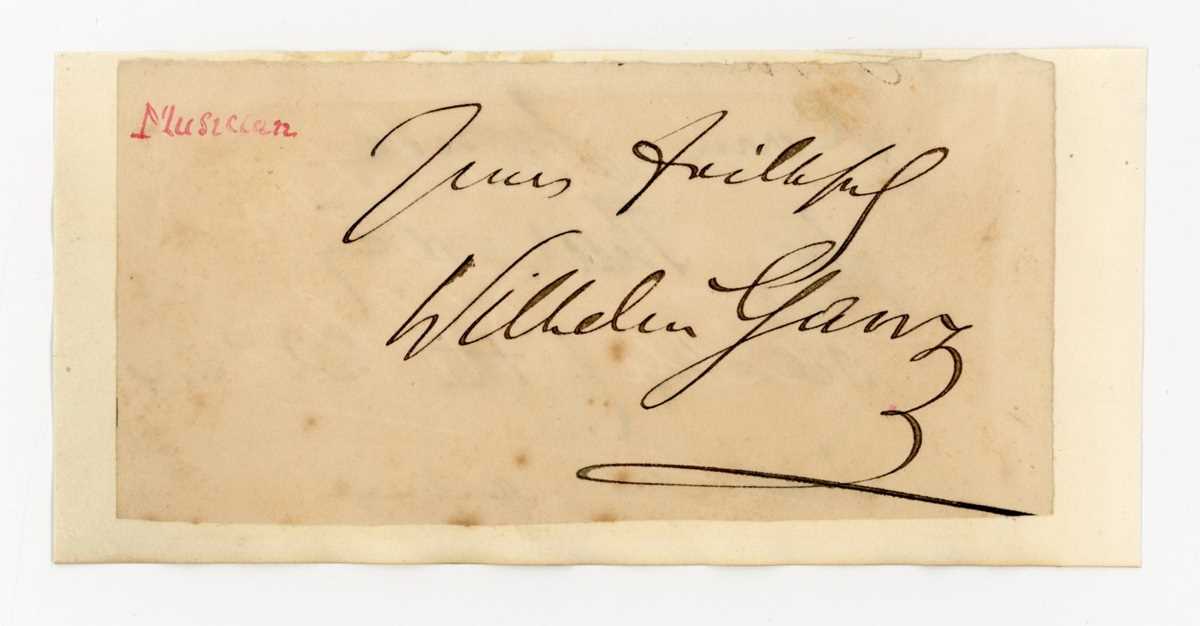 Musician
Yours faithfully
Wilhelm Ganz